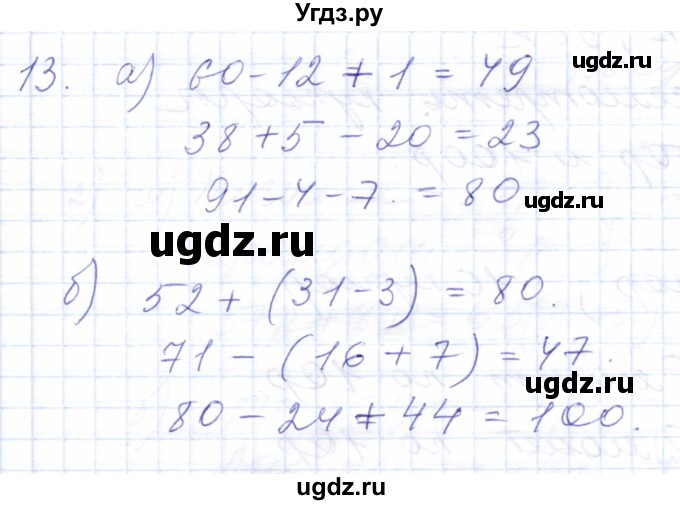 Угдз.ру
13. а) 60 - 12 + 1 = 49
ugdz.ru
38 + 5 - 20 = 23
91 - 4 - 7 = 80
ugdz.ru
ugdz.ru
б) 52 + (31 - 3) = 80.
71 - (16 + 7) = 47.
ugdz.ru
80 - 24 + 44 = 100.
ugdz.ru